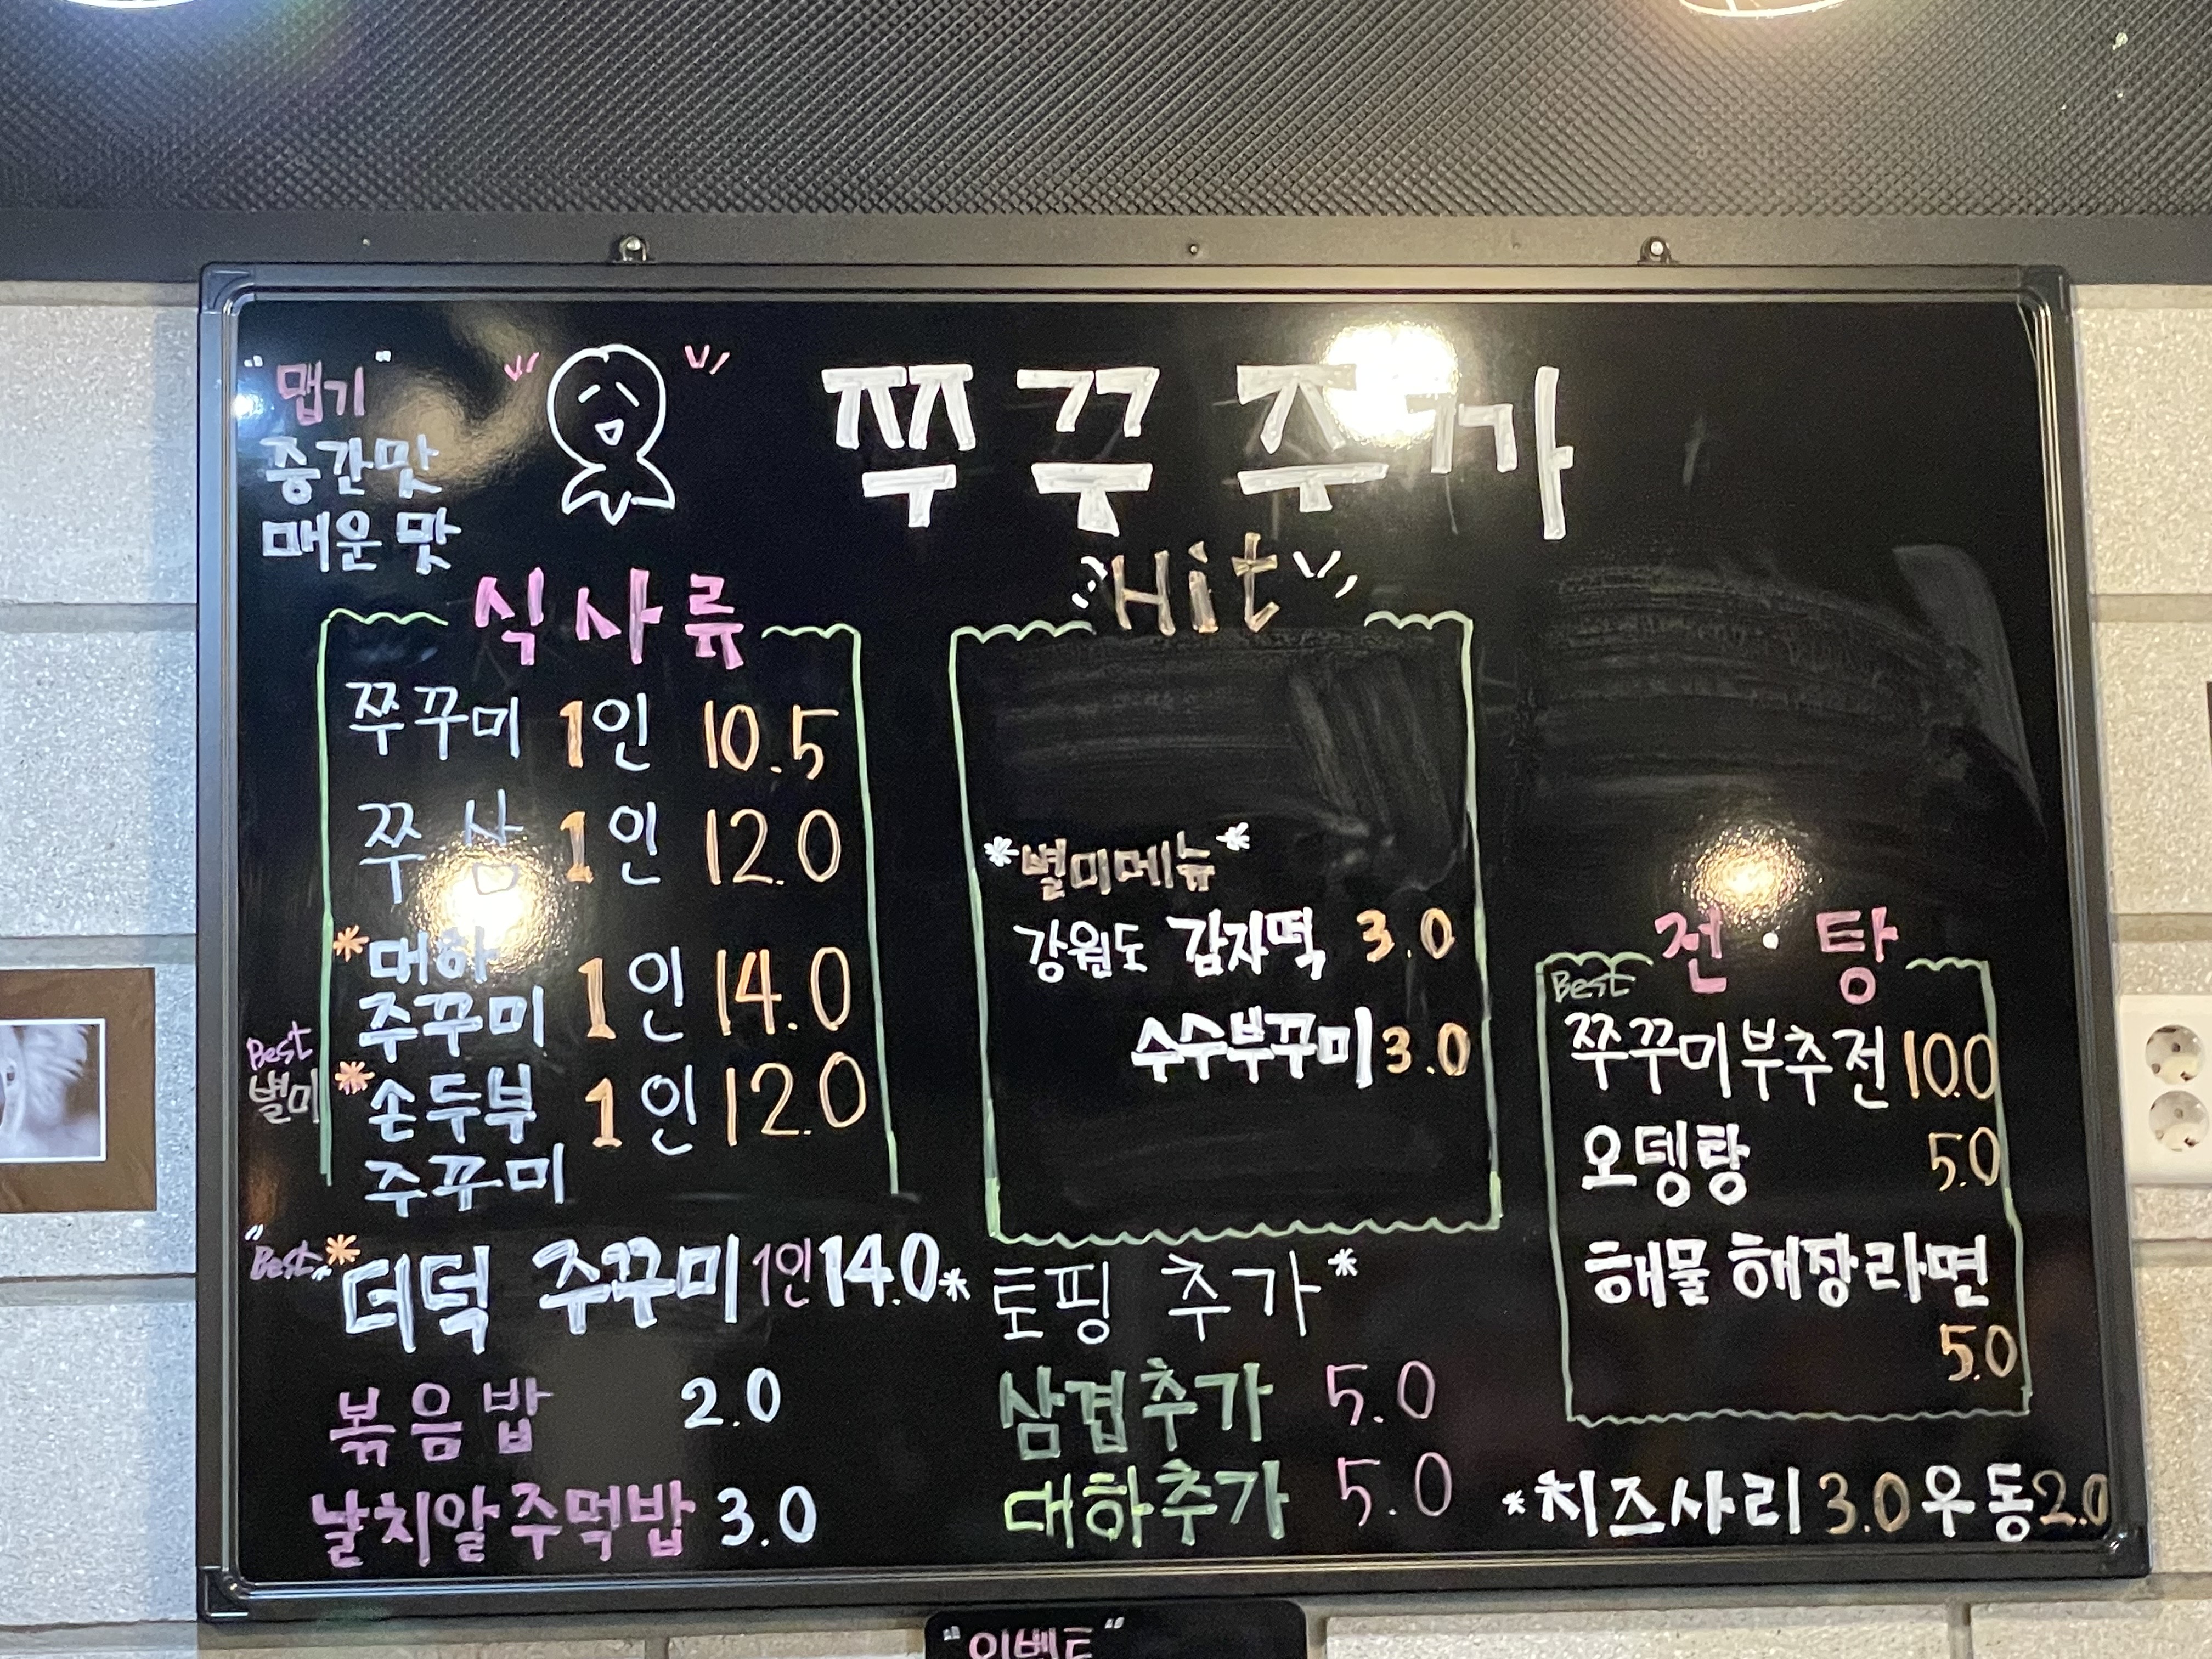 "맵기"
중간맛
매운 맛
쭈꾸주가
식사류
쭈꾸미 1인 10.5
쭈삼 1인 12.0
*대하
주꾸미 1인 14.0
Best
별미
*손두부
주꾸미 1인 12.0
"Best" *더덕 주꾸미 1인 14.0
볶음밥 2.0
날치알주먹밥 3.0
Hit
*별미메뉴*
강원도 감자떡 3.0
수수부꾸미 3.0
*토핑 추가*
삼겹추가 5.0
대하추가 5.0
전·탕
Best
쭈꾸미부추전 10.0
오뎅탕 5.0
해물해장라면
5.0
*치즈사리 3.0 우동 2.0
"이벤트"